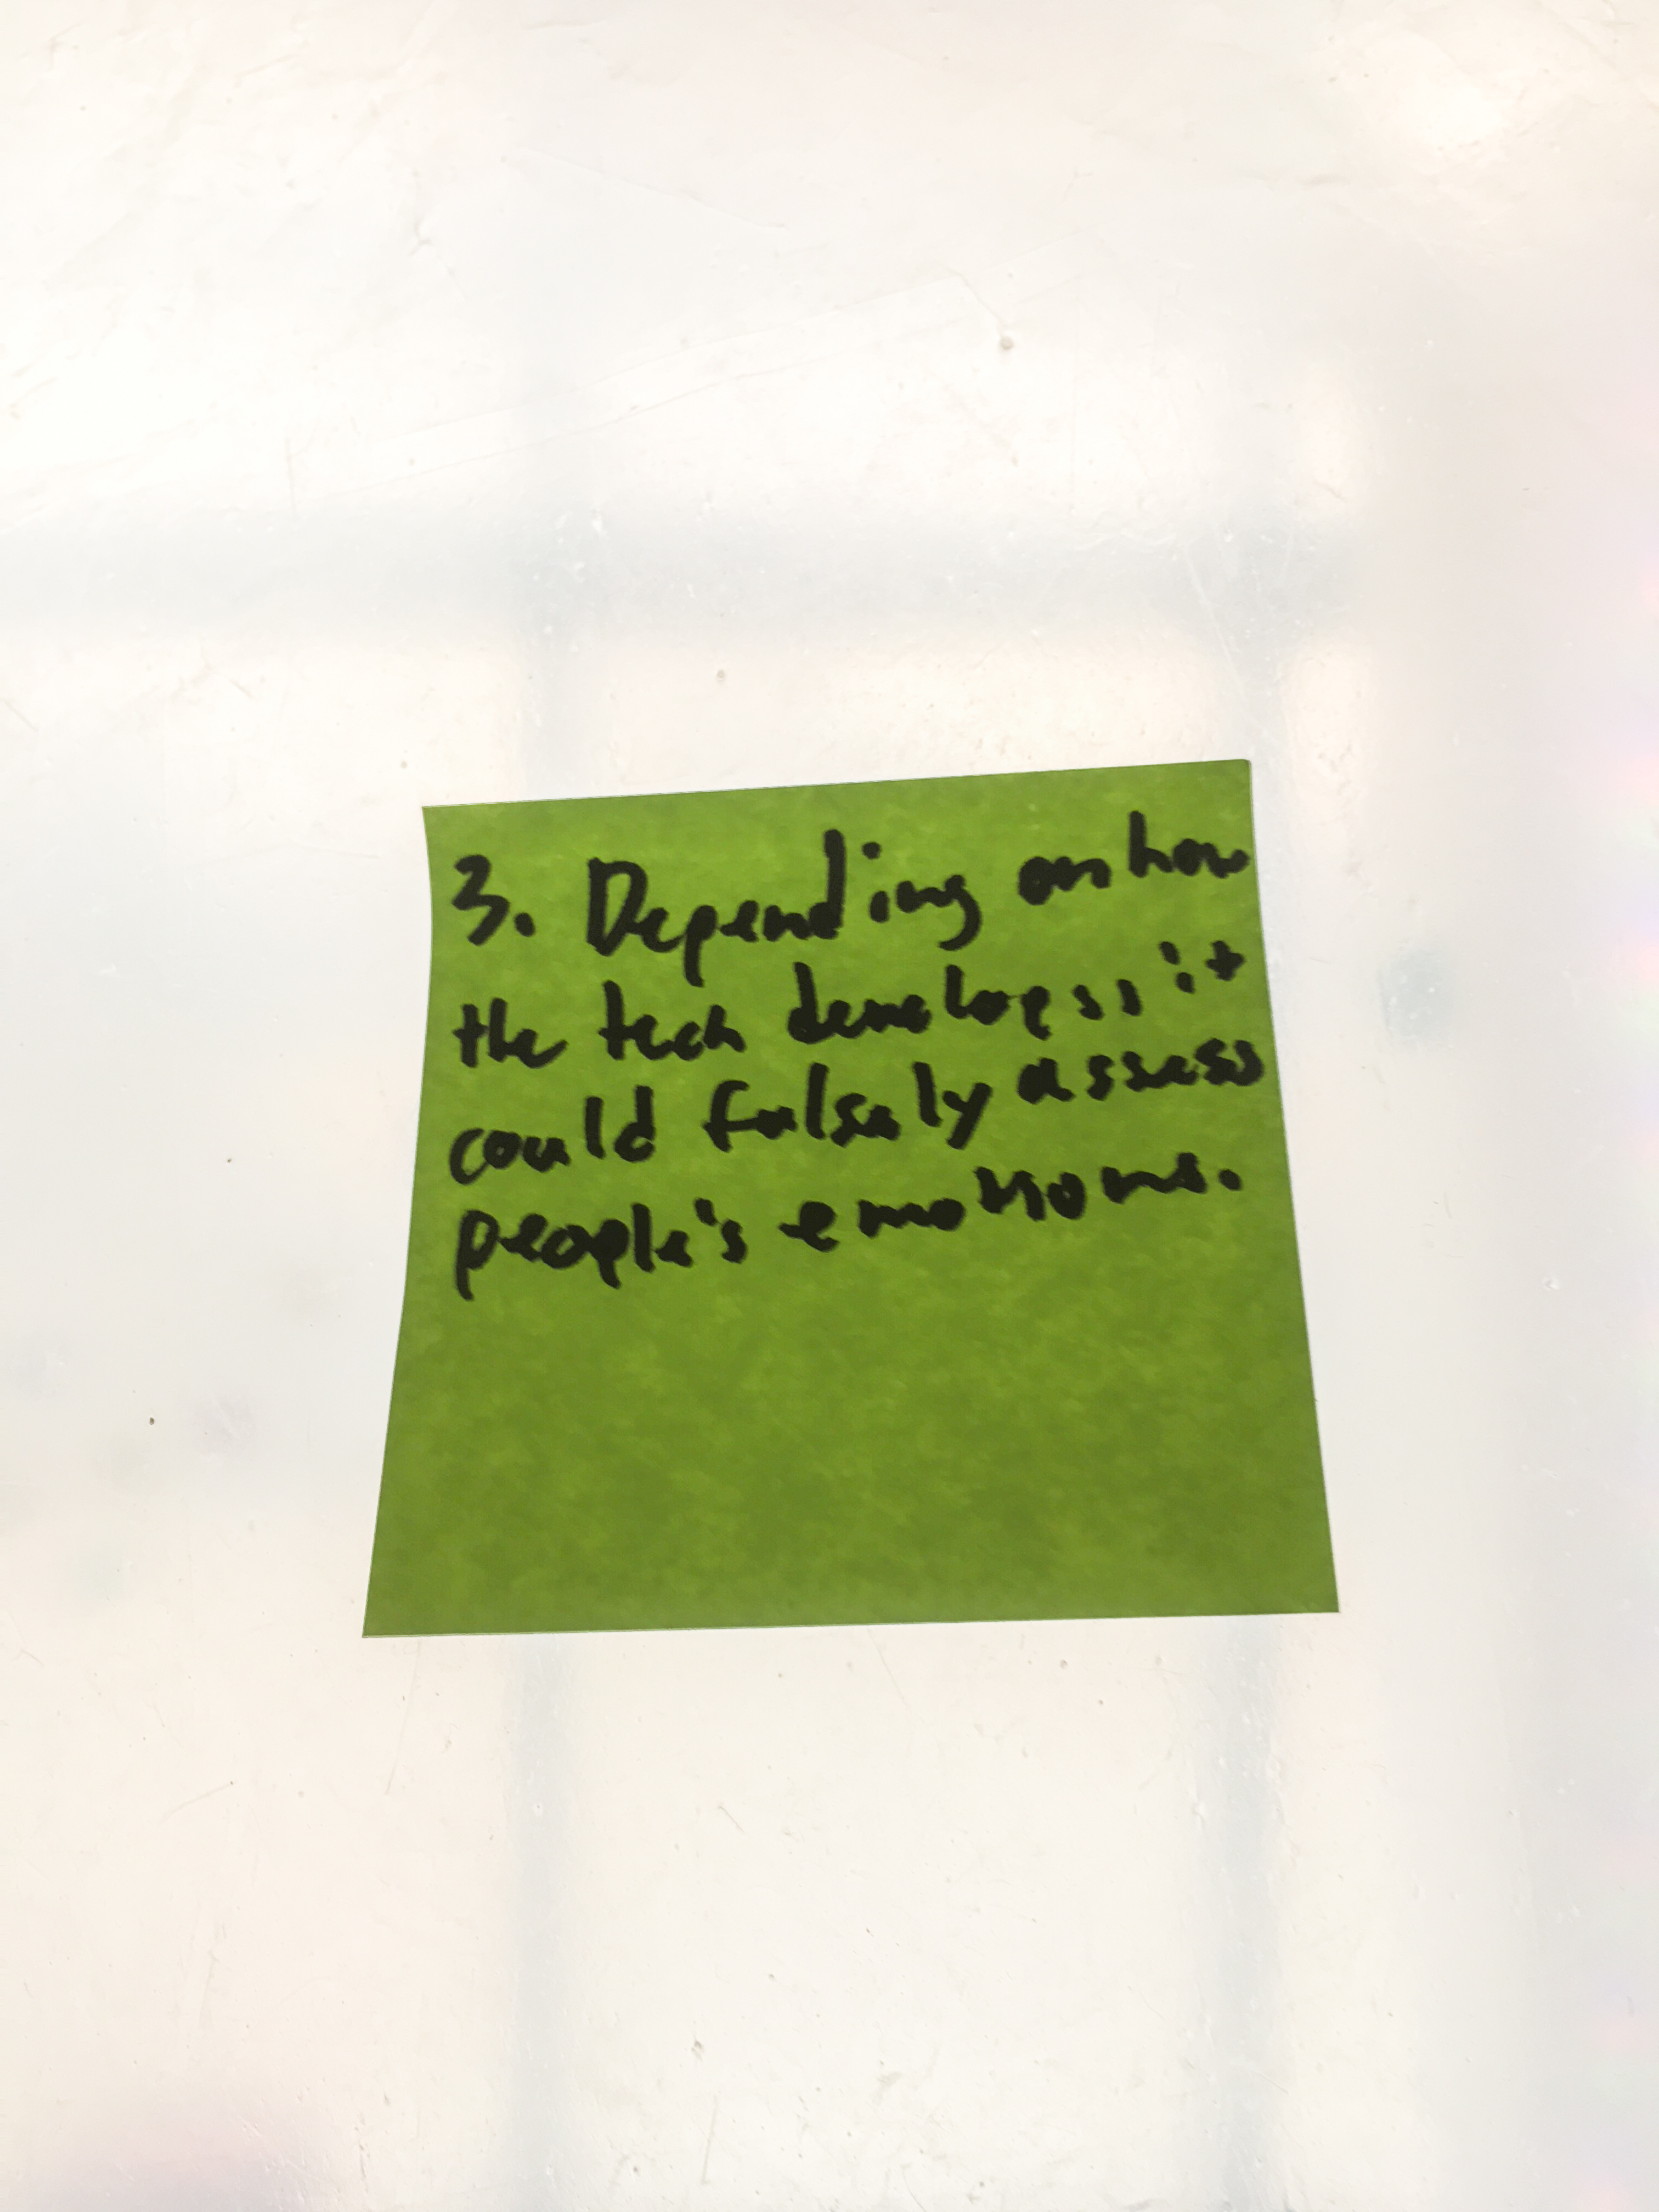 3. Depending on how
the tech developss it
could falsely assess
people's emotions.